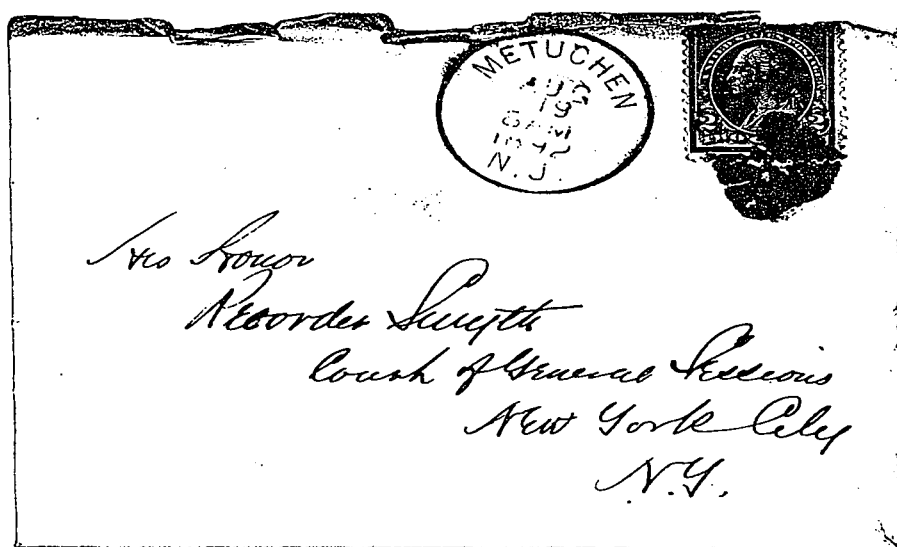 METUCHEN
AUG
19
8AM
1892
N.J.
2 2
His Honor
Recorder Smyth
Court of General Sessions
New York City
N.Y.